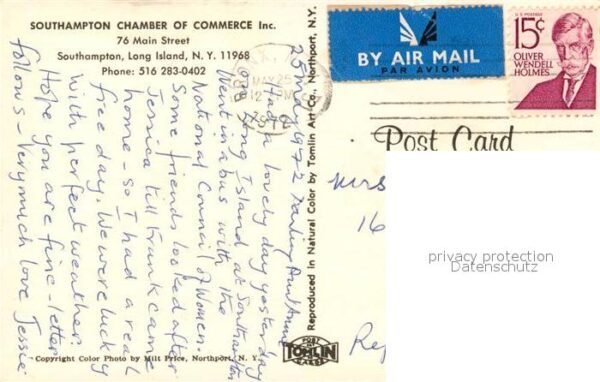 SOUTHAMPTON CHAMBER OF COMMERCE Inc.
76 Main Street
Southampton, Long Island, N. Y. 11968
Phone: 516 283-0402
BY AIR MAIL
PAR AVION
U.S. POSTAGE
15¢
OLIVER
WENDELL
HOLMES
MAY 25
12
PM
Post Card
25 May 1972 Darling
Had a lovely day yesterday
on Long Island at Southampton
Went in a bus with the
National Council of Women.
Some friends looked after
Jessica till Frank came
home - so I had a real
free day. We were lucky
with perfect weather.
Hope you are fine - letter
follows - Very much love Jessie
Reproduced in Natural Color by Tomlin Art Co., Northport, N.Y.
Mrs
16
Rep
privacy protection
Datenschutz
POST
TOMLIN
CARDS
Copyright Color Photo by Milt Price, Northport, N. Y.